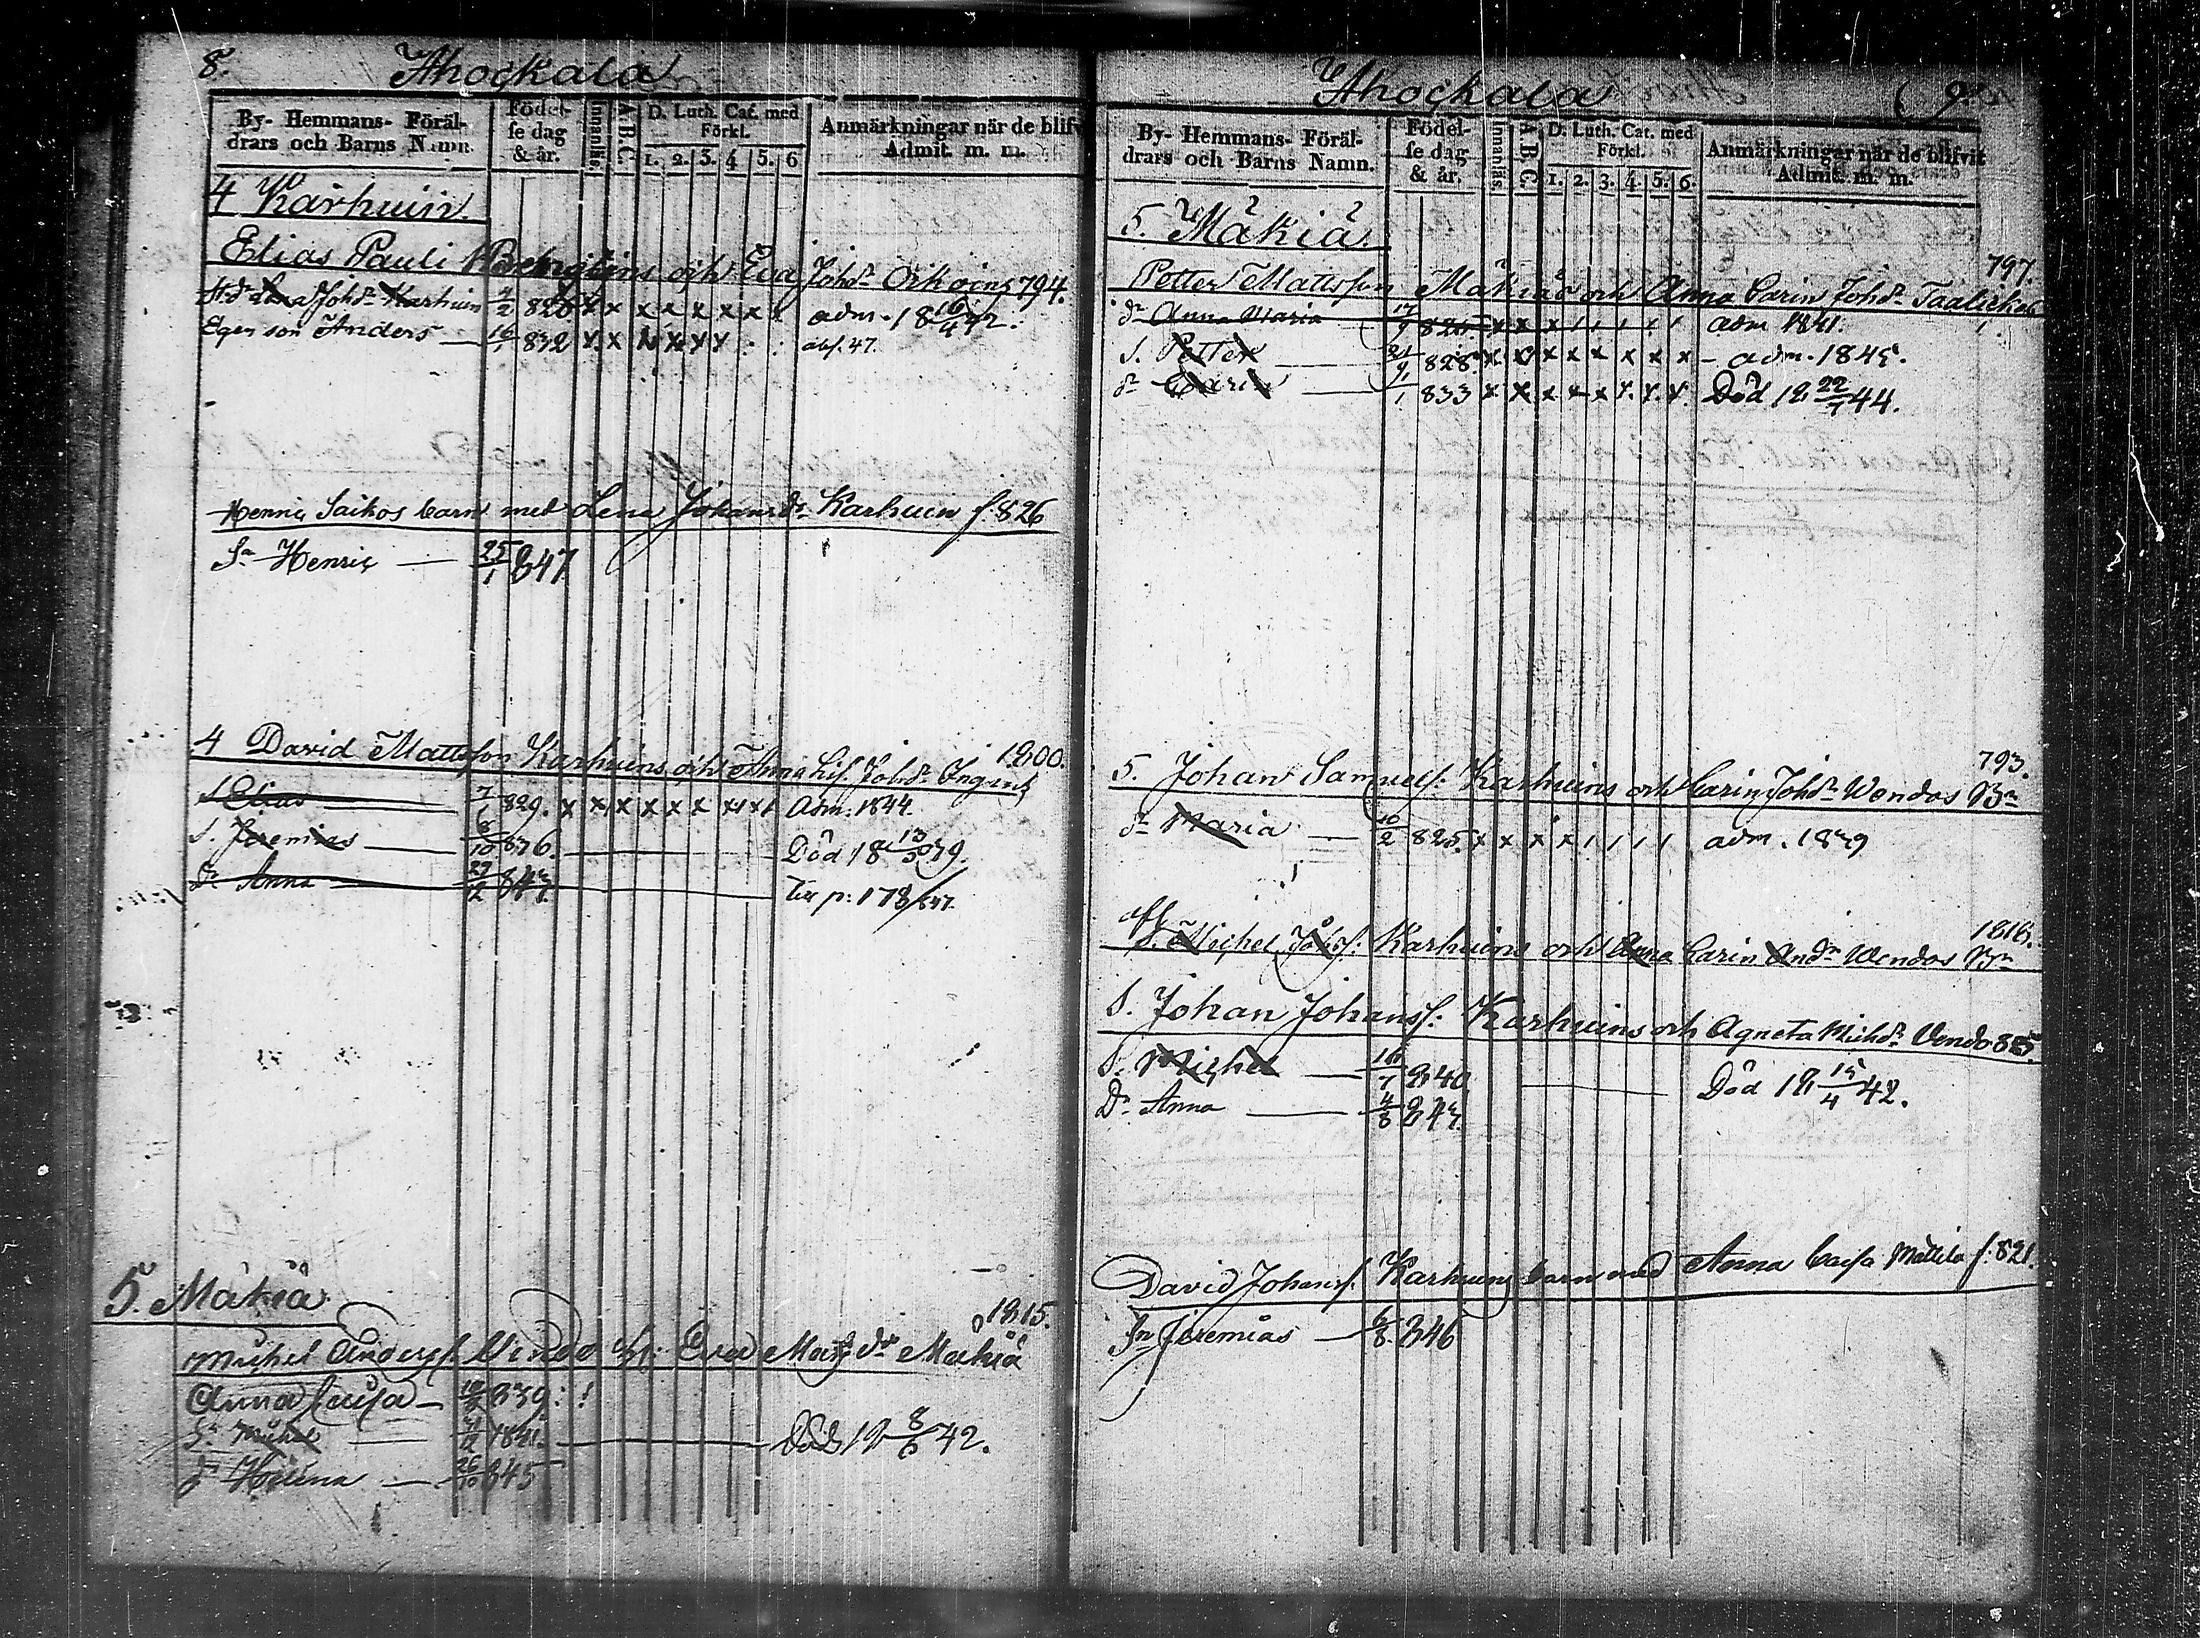 8.
Ahockala
By- Hemmans- Föräl-
drars och Barns Namn.
Födel-
se dag
& år.
Innanläs.
A B C.
D. Luth. Cat. med
Förkl.
1. 2. 3. 4 5. 6
Anmärkningar när de blifv
Admit. m. m.
4 Karhuin.
Elias Pauli Bengtins och Eva Johdr Oikoinz 794.
Lena Johdr Karhuin 4/2 826 x x x x x x x x adm. 18 16/4 42.
Egen son Anders 16/1 832 x x x x x x : : 47.
Henric Saikos barn med Lena Johansdr Karhuin f. 826
Sn Henric — 25/1 847
4 David Mattsson Karhuins och Anna Lis. Johdr Ingmz 1800.
S Elias 7/1 829. x x x x x x x x Adm: 1844.
S. Jeremias 8/10 836. Död 18 13/5 39.
Dr Anna 29/12 847. p: 178/847.
5. Makiä
1815.
Michel Andersf. Vendo h: Eva Matsdr Makiä
Anna Caisa — 839 : !
Sn Michel 1841. Död 18 8/6 42.
Dr Helena — 26/10 845
Ahockala
9.
By- Hemmans- Föräl-
drars och Barns Namn.
Födel-
se dag
& år.
Innanläs
A B C.
D. Luth. Cat. med
Förkl.
1. 2. 3. 4. 5. 6.
Anmärkningar när de blifvit
Admit. m. m.
5. Mäkiä.
797.
Petter Mattsson Mäkiäs och Anna Carin Johdr
dr Anna Maria 17/9 826. x x x adm 1841.
S. Petter 21/9 828. x x x x x x x x — adm. 1845.
dr Carin 1 833 x x x x x x x x Död 18 22/7 44.
793.
5. Johan Samuelf: Karhuins och Carin Johdr Wendos Br
dr Maria — 10/2 825. x x x x adm. 1839
1816.
S. Michel Johsf: Karhuins och Anna Carin Andr Wendos Br
S. Johan Johansf: Karhuins och Agneta Michdr Vendo 815.
S. Michel — 16/1 840 Död 18 15/4 42.
Dr Anna — 4/8 843.
David Johansf. Karhuinz barn med Anna Caisa Mattila f: 821.
Sn Jeremias — 6/8. 846